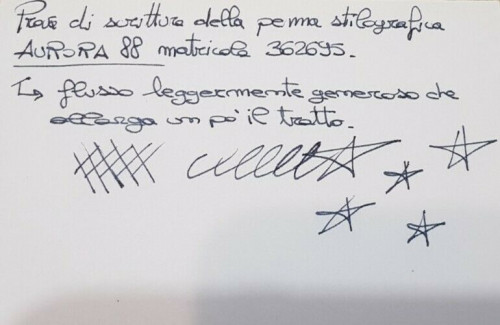 Prove di scrittura della penna stilografica
AURORA 88 matricola 362695.
↳ flusso leggermente generoso che
allarga un po' il tratto.